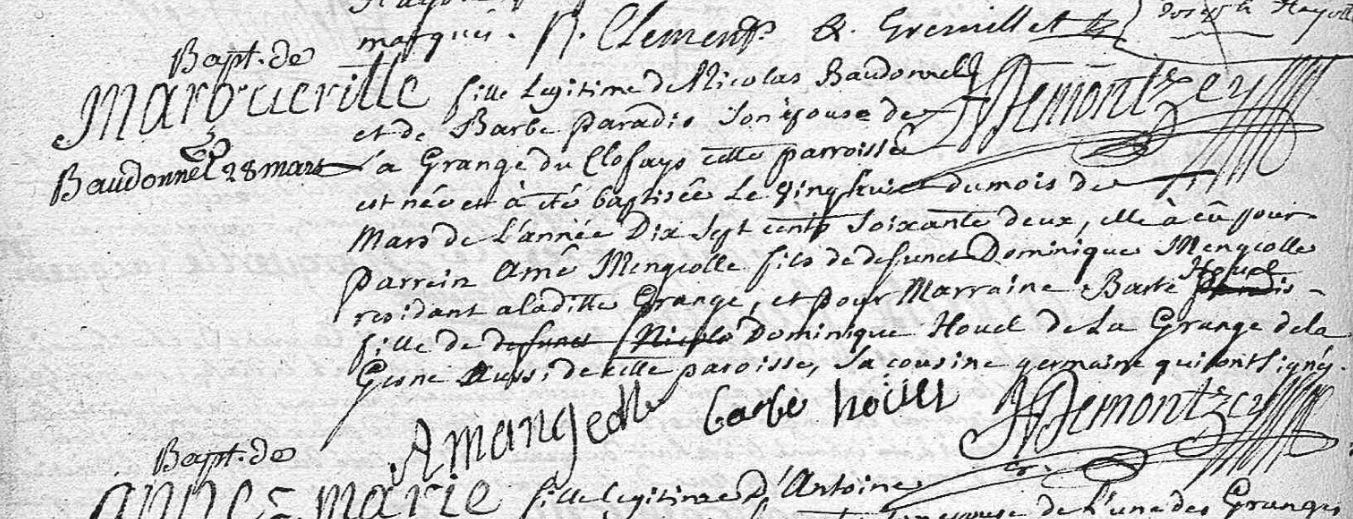 marqués. N. Clement & Gremillet
Bapt. de
Margueritte
Baudonnel 28 mars
fille legitime de Nicolas Baudonnel
et de Barbe paradis son épouse de
La Grange du Clofays cette parroisse
est née et à été baptisée Le vingthuit du mois de
Mars de L'année Dix Sept cents Soixante deux, elle à eu pour
parrein Amé Mengeolle fils de defunct Dominique Mengeolle
residant a laditte Grange, et pour Marraine Barbe Houel
fille de defunct Nicolas Dominique Houel de La Grange de la
Gesne Aussi de cette paroisse, sa cousine germaine qui ont signé.
A mangeolle barbe houel Demontzey
Bapt. de
anne marie fille legitime d'Antoine
épouse de L'une des Granges